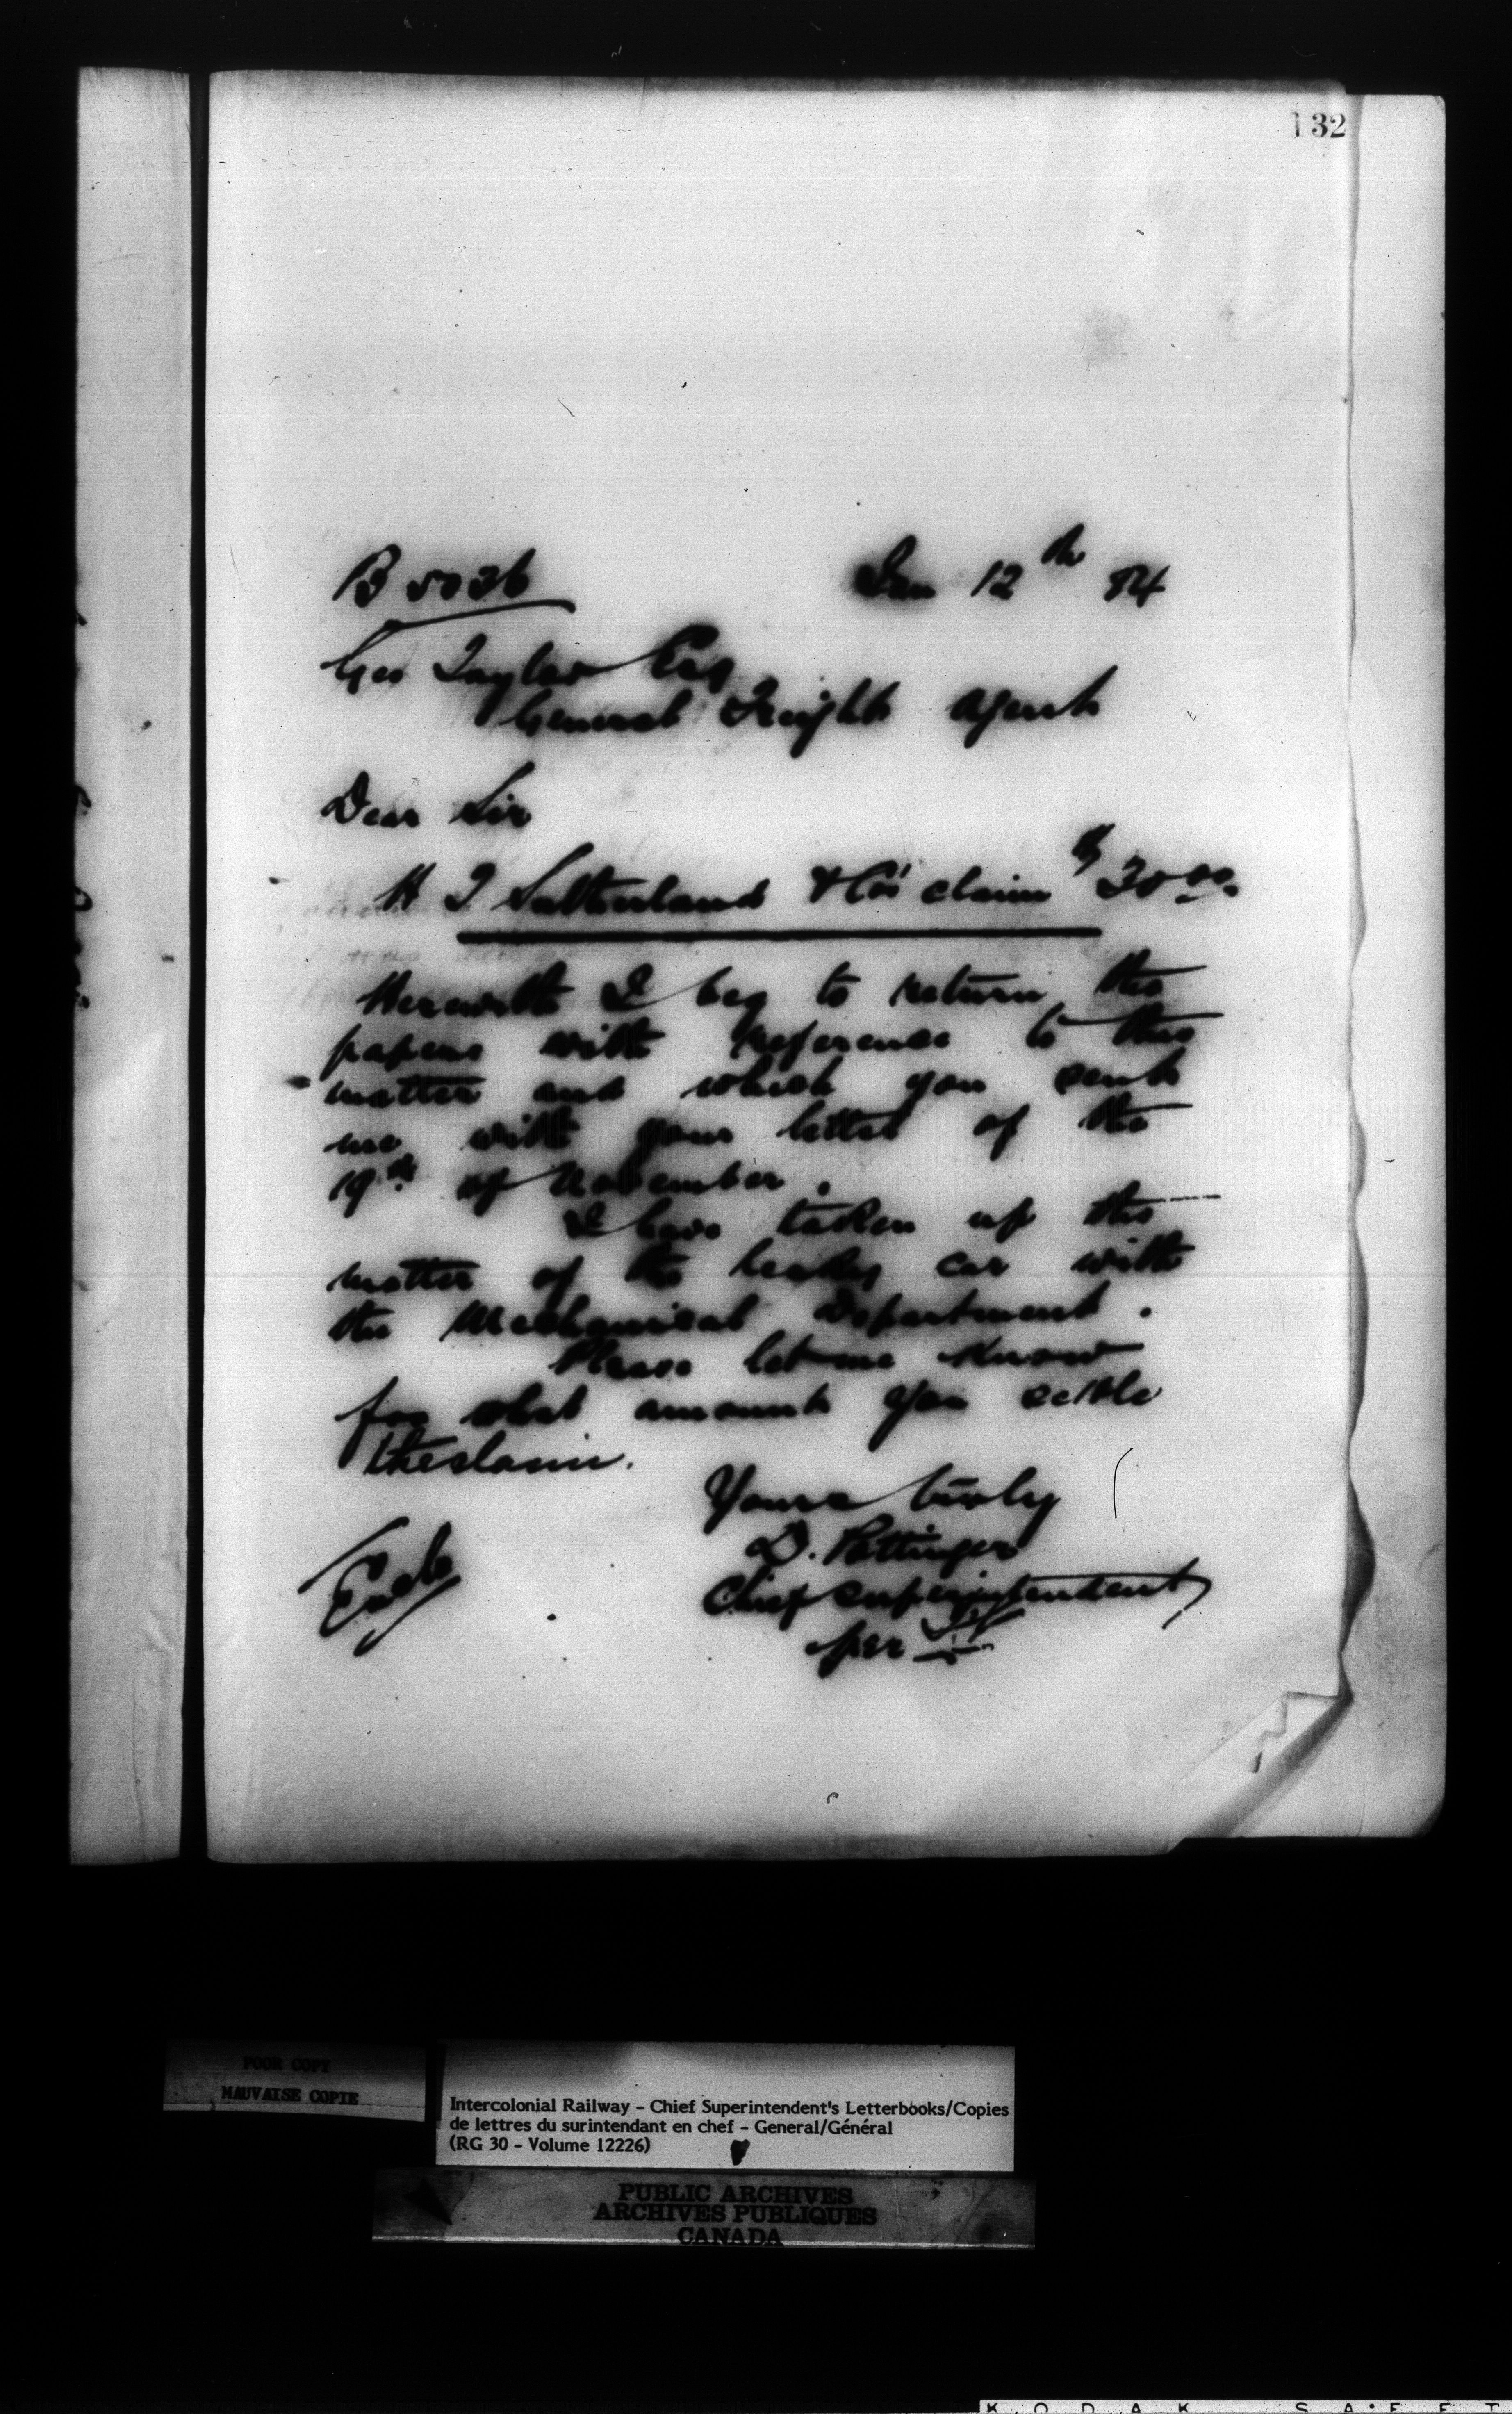 132
B 5036 Jan 12th 84
Geo Taylor Esq
General Freight Agent
Dear Sir
Sutherland & Co's claim $30.00
Herewith I beg to return the
papers with reference to this
matter and which you sent
me with your letter of the
19th of November.
I have taken up the
matter of the leaky car with
the Mechanical Department.
Please let me know
for what amount you settle
the claim.
Yours truly
D. Pottinger
Chief Superintendent
per
Encls
POOR COPY
MAUVAISE COPIE
Intercolonial Railway - Chief Superintendent's Letterbooks/Copies
de lettres du surintendant en chef - General/Général
(RG 30 - Volume 12226)
PUBLIC ARCHIVES
ARCHIVES PUBLIQUES
CANADA
KODAK SAFET